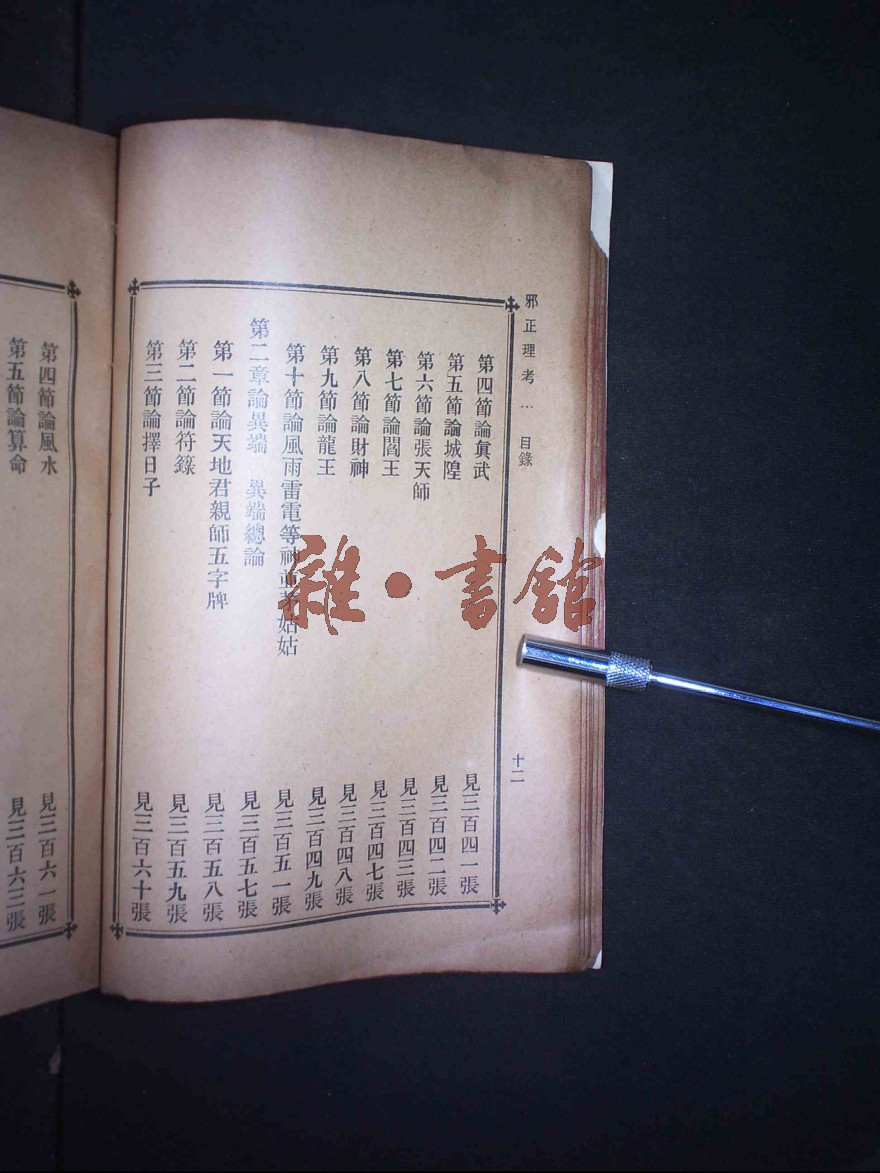 邪正理考 … 目錄 十二
第四節論眞武 見三百四一張
第五節論城隍 見三百四二張
第六節論張天師 見三百四三張
第七節論閻王 見三百四七張
第八節論財神 見三百四八張
第九節論龍王 見三百四九張
第十節論風雨雷電等神並茅姑姑 見三百五一張
第二章論異端 異端總論 見三百五七張
第一節論天地君親師五字牌 見三百五八張
第二節論符籙 見三百五九張
第三節論擇日子 見三百六十張
第四節論風水 見三百六一張
第五節論算命 見三百六三張
雜·書館